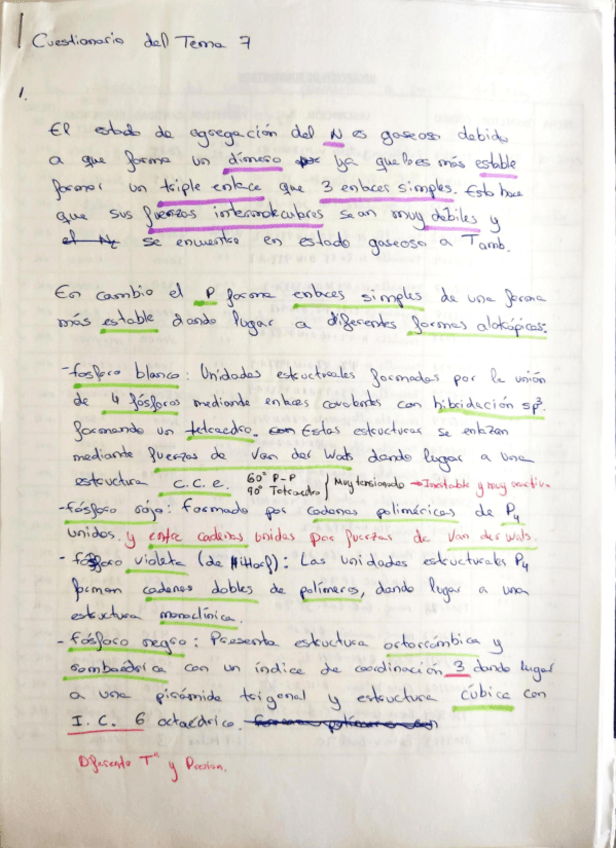 Cuestionario del Tema 7
1.
El estado de agregación del N es gaseoso debido
a que forma un dímero por ya que es más estable
formar un triple enlace que 3 enlaces simples. Esto hace
que sus fuerzas intermoleculares sean muy débiles y
el N2 se encuentre en estado gaseoso a Tamb.
En cambio el P forma enlaces simples de una forma
más estable dando lugar a diferentes formas alotrópicas:
-fósforo blanco: Unidades estructurales formadas por la unión
de 4 fósforos mediante enlaces covalentes con hibridación sp³.
formando un tetraedro. con Estas estructuras se enlazan
mediante fuerzas de Van der Wals dando lugar a una
estructura c.c.e. 60° P-P
90° Tetraedro } Muy tensionado → Inestable y muy reactivo
-fósforo rojo: Formado por cadenas poliméricas de P4
unidos. y entre cadenas unidas por fuerzas de Van der Wals.
- fósforo violeta (de Hittorf): Las unidades estructurales P4
forman cadenas dobles de polímeros, dando lugar a una
estructura monoclínica.
- fósforo negro: Presenta estructura ortorrómbica y
romboédrica con un índice de coordinación 3 dando lugar
a una pirámide trigonal y estructura cúbica con
I.C. 6 octaédrico.
Diferente Tª y Presión.